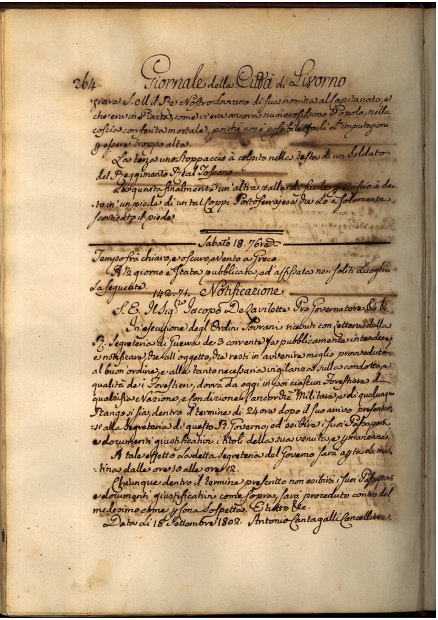 264 Giornale della Città di Livorno
S. M. il Re Nostro Sovrano di sua nomina al Capitanato, e
che era in Piazza, come vi era ancora numerosissimo Popolo, nella
coscia con ferita mortale, poichè non è possibile l'amputazione
essere troppo alta.
La terza uno stoppaccio à colpito nella testa di un Soldato
del Reggimento Real Toscano
La quarta finalmente un'altra palla di fucile à da-
to in un piede di un tal Coppi Portoferrajese che Lo à solamente
scorticato il piede.
Sabato 18. 7bre
Tempo frà chiaro, e oscuro, e Vento a Greco.
A giorno è stata pubblicata, ed affissata nei soliti Luoghi
La seguente. Notificazione
S. E. Il Sig. Jacopo De Lavilette Pro Governatore &c.
In esecuzione degl'Ordini Sovrani ricevuti con lettera della
R. Segreteria di Guerra de' 3 corrente fa pubblicamente intendere
e notificare, che all'oggetto, che resti in avvenire meglio provveduto
al buon ordine, e alla tanto necessaria vigilanza sulla condotta, e
qualità de' i Forestieri, dovrà da oggi in poi ciascun Forestiero di
qualsisia Nazione, e Condizione, ancorchè Militare, e di qualunque
Rango si sia, dentro il termine di 24 ore dopo il suo arrivo presentar-
si alla Segreteria di questo R. Governo, ed esibire i suoi Passaporti
e documenti giustificativi i titoli della sua venuta, e permanenza.
A tale effetto la detta Segreteria del Governo sarà aperta mat-
tina dalle ore 10 alle ore 12.
Chiunque dentro il termine prescritto non esibirà i suoi Passaporti
e documenti giustificativi come sopra, sarà proceduto contro del
medesimo come persona sospetta. E tutto &c.
Data Li 18 Settembre 1802. Antonio Cantagalli Cancelliere